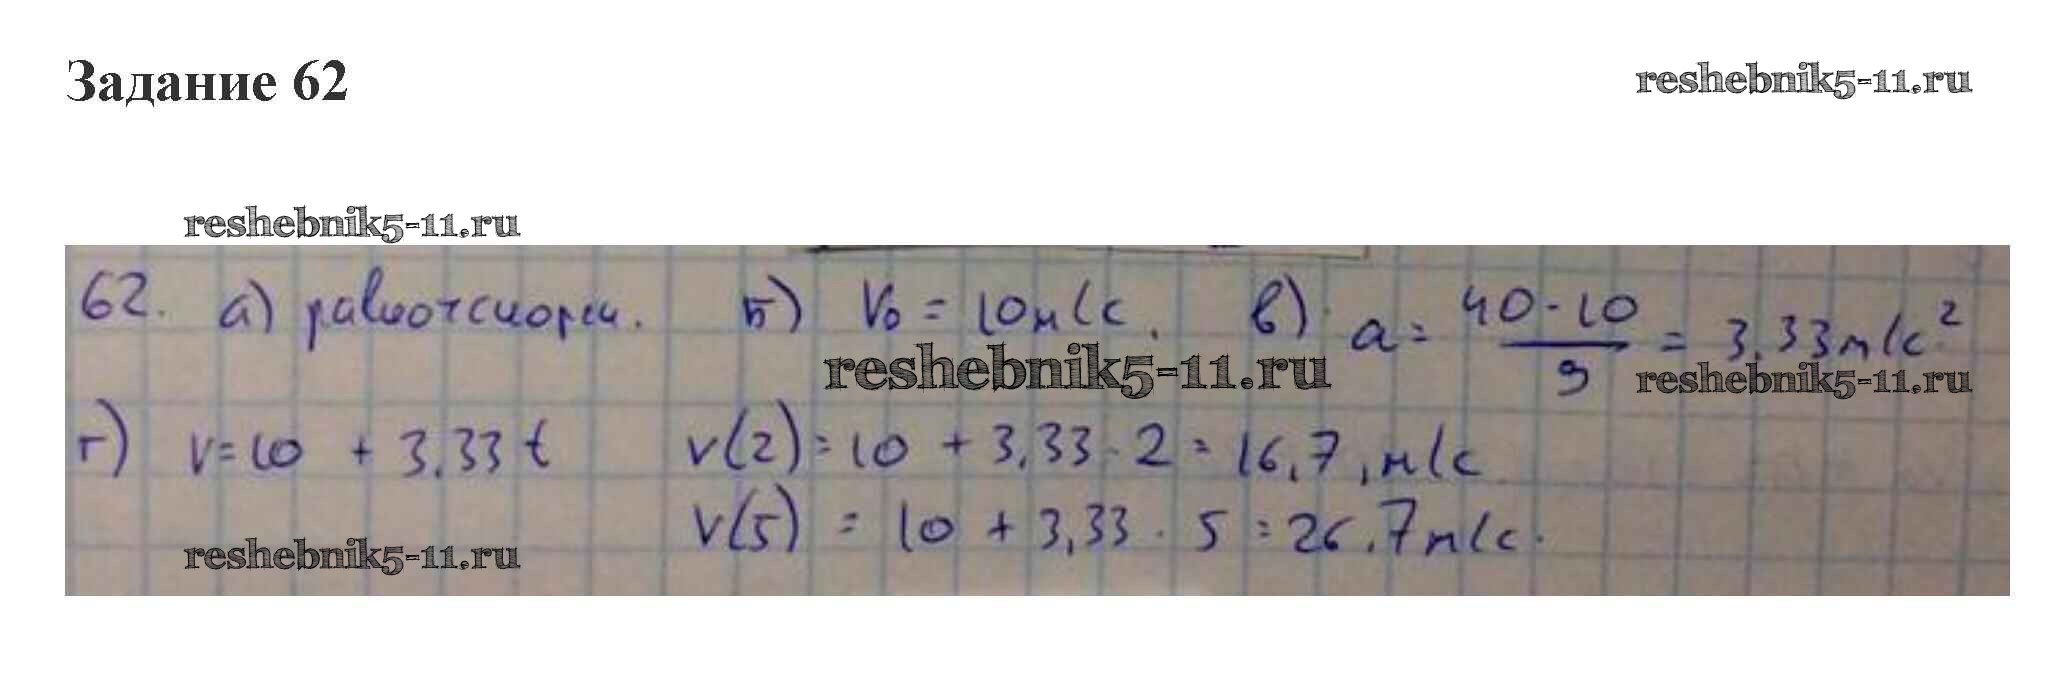 Задание 62
reshebnik5-11.ru
reshebnik5-11.ru
62. а) равноускорен. б) V₀ = 10 м/с. в) a = (40 - 10)/9 = 3,33 м/с²
reshebnik5-11.ru
reshebnik5-11.ru
г) v = 10 + 3,33 t v(2) = 10 + 3,33 · 2 = 16,7 м/с
v(5) = 10 + 3,33 · 5 = 26,7 м/с.
reshebnik5-11.ru